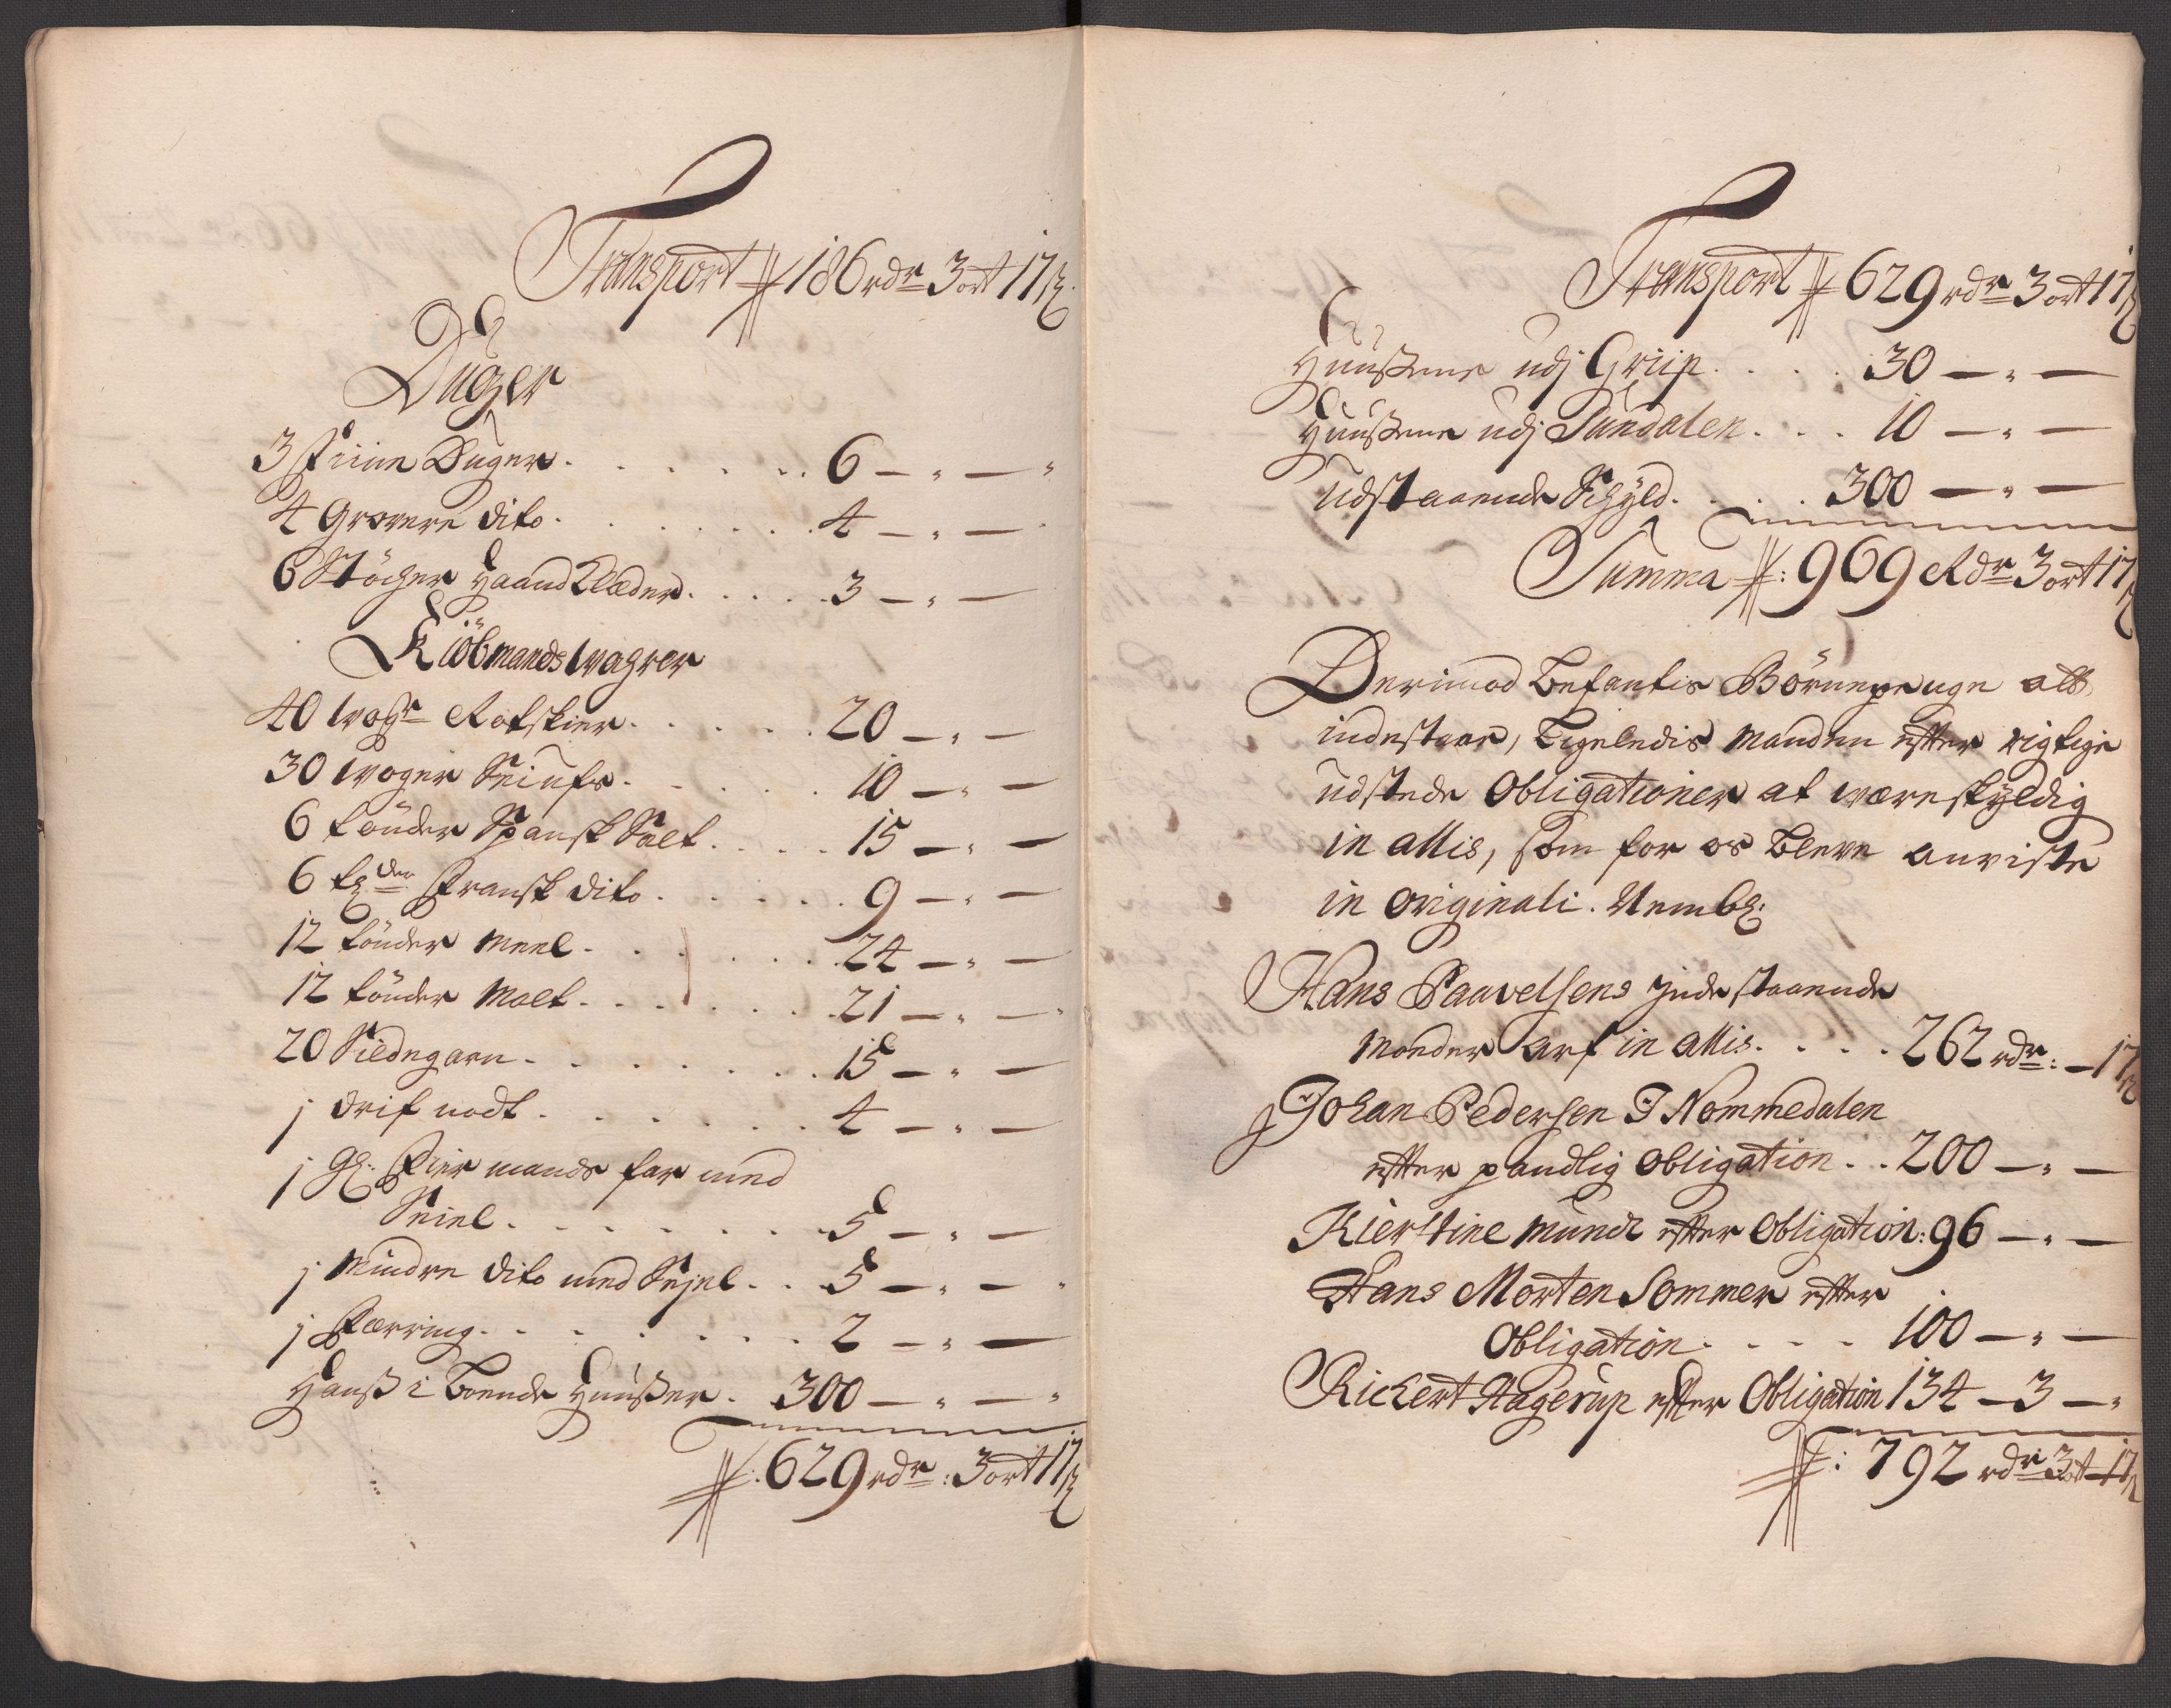 Transport 186 rdr 3 ort 17 ß
Duger
3 Fiine Duger . . . . . . 6 – " – "
4 Grovere dito . . . . . . 4 – " –
6 Støcher Haandklæder . . . . . 3 – " –
Kiöbmands wahrer
40 wogr Rotskier . . . . . 20 – " –
30 woger . . . . . 10 – " –
6 tönder Spansk Salt . . . . 15 – " –
6 tdr Fransk dito . . . . . 9 – " –
12 tönder Meel . . . . . 24 – " –
12 tönder Malt . . . . . 21 – " –
20 Sildegarn . . . . . . 15 – " –
j drif nodt . . . . . . 4 – " –
j gl: Fiir mands far med
Seiel . . . . . . 5 – " –
j Mindre dito med Sejel . . 5 – " –
j Færring . . . . . . 2 – " –
Hanß i Boende Huußer . 300 – " – "
629 rdr : 3 ort 17 ß
Transport 629 rdr 3 ort 17 ß
Huußene udj Griip . . . . 30 – " –
Huußene udj Sundalen . . . 10 – " –
Udstaaende Schyld . . . . 300 – " –
Summa : 969 Rdr 3 ort 17 ß
Derimod Befantis Börnepenge att
indestaar, Ligeledis Manden efter rigtige
udstede Obligationer at være skyldig
in allis, som for os Bleve anviste
in originali. Nembl:
Hans Paavelsens Jndestaaende
Moeder Arf in allis . . . . 262 rdr : – 17 ß
Johan Pedersen I Nommedalen
efter pandlig obligation . . 200 – " –
Kierstine Mundt efter Obligation : 96 – " –
Hans Morten Sommer efter
Obligation . . . . 100 – " –
Rickert Hagerup efter Obligation 134 – 3 – "
: 792 rdr 3 ort 17 ß